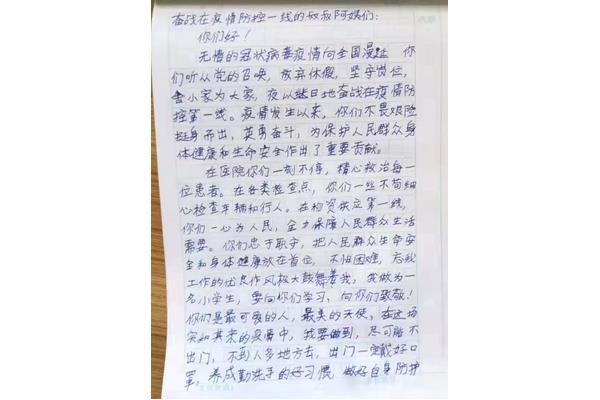 奋战在疫情防控一线的叔叔阿姨们：
你们好！
无情的冠状病毒疫情向全国漫延 你
们听从党的召唤，放弃休假，坚守岗位，
舍小家为大家，夜以继日地奋战在疫情防
控第一线。疫情发生以来，你们不畏艰险
挺身而出，英勇奋斗，为保护人民群众身
体健康和生命安全作出了重要贡献。
在医院你们一刻不停，精心救治每一
位患者。在各类检查点，你们一丝不苟细
心检查车辆和行人。在物资供应第一线，
你们一心为人民，全力保障人民群众生活
需要。你们忠于职守，把人民群众生命安
全和身体健康放在首位，不怕困难，
工作的优良作风极大鼓舞着我，我做为一
名小学生，要向你们学习、向你们致敬！
你们是最可爱的人，最美的天使，在这场
突如其来的疫情中，我要做到，尽可能不
出门，不到人多地方去，出门一定戴好口
罩，养成勤洗手的好习惯，做好自身防护